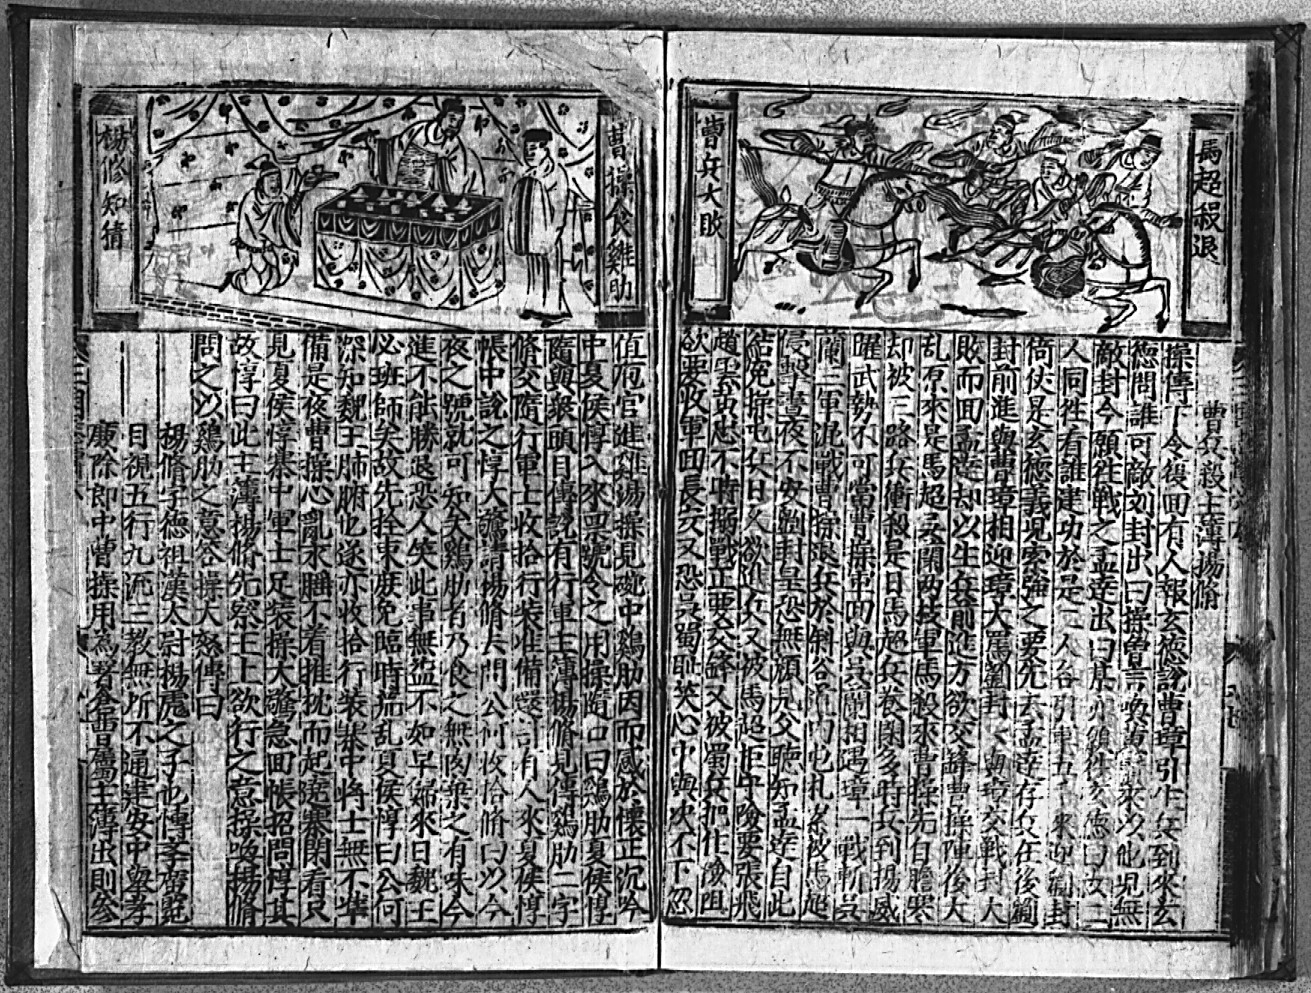 馬超殺退
曹兵大敗
曹兵殺主簿楊脩
操傳下令復回有人報玄德說曹璋引生兵到來玄
德問誰可敵刘封出曰操曾言喚黃鬚來以他児無
敵封今願往戰之孟達出曰某亦願往玄德曰女二
人同徃看誰建功於是二人各引軍五千來迎刘封
倚仗是玄德義児索強之要先去孟達存兵在後劉
封前進與曹璋相迎璋大罵劉封〻與璋交戰封大
敗而回孟達却以生兵前進方欲交鋒曹操陣後大
乱原來是馬超吳闌两枝軍馬殺來曹操先自膽寒
却被三路兵衝殺是日馬超兵養閑多時兵到揚威
曜武勢不可當曹操軍回與吳闌相遇璋一戰斬吳
闌二軍混戰曹操退兵於斜谷界口屯札累被馬超
侵擊晝夜不安劉封是恐無顏見父聽知孟達自此
結冤操屯兵日久欲進兵又被馬超拒守險要張飛
趙雲黃忠不時搦戰正要交鋒又被蜀兵把住險阻
欲要收軍回長安又恐吳蜀恥笑心中與决不下忽
曹操食雞肋
楊修知猜
值庖官進雞湯操見碗中鷄肋因而感於懷正沉吟
中夏侯惇入來禀號令之用操隨口曰鷄肋夏侯惇
隨與衆頭目傳說有行軍主薄楊脩見傳鷄肋二字
脩交隨行軍士收拾行裝准備還計有人來夏侯惇
帳中說之惇大驚請楊脩去問公何收拾脩曰以今
夜之號就可知矣鷄肋者乃食之無肉棄之有味今
進不能勝退恐人笑此事無益不如早歸來日魏王
必班師矣故先拴束庻免臨時荒乱夏侯惇曰公何
深知魏王肺腑也遂亦收拾行裝寨中將士無不準
備是夜曹操心亂求睡不着推枕而起遶寨閑看只
見夏侯惇寨中軍士足裝操大驚急回帳招問惇其
故惇曰此主簿楊脩先察王上欲行之意操喚楊脩
問之以鷄肋之意答操大怒傳曰
楊脩字德祖漢太尉楊彪之子也慱孝舊覧
目視五行九流三教無所不通建安中舉孝
廉除郎中曹操用為署倉曹屬主薄出則參